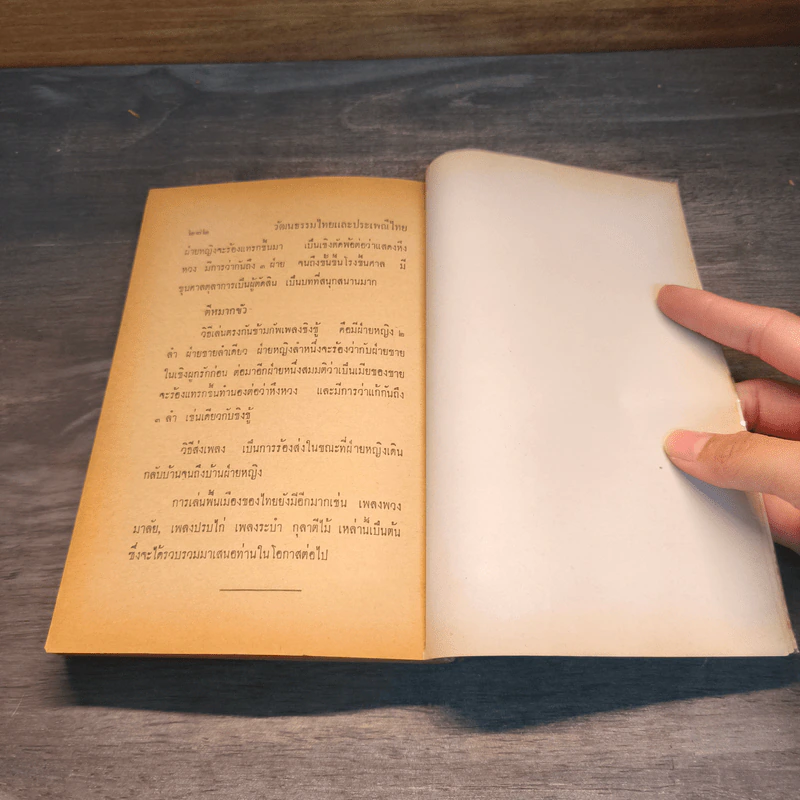 ๒๘๒ วัฒนธรรมไทยและประเพณีไทย
ฝ่ายหญิงจะร้องแทรกขึ้นมา เป็นเชิงตัดพ้อต่อว่าแสดงหึง
หวง มีการว่ากันถึง ๓ ฝ่าย จนถึงขั้นขึ้นโรงขึ้นศาล มี
ขุนศาลตุลาการเป็นผู้ตัดสิน เป็นบทที่สนุกสนานมาก
ตีหมากชัว
วิธีเล่นตรงกันข้ามกับเพลงชิงชู้ คือมีฝ่ายหญิง ๒
ลำ ฝ่ายชายลำเดียว ฝ่ายหญิงลำหนึ่งจะร้องว่ากับฝ่ายชาย
ในเชิงผูกรักก่อน ต่อมาอีกฝ่ายหนึ่งสมมติว่าเป็นเมียของชาย
จะร้องแทรกขึ้นทำนองต่อว่าหึงหวง และมีการว่าแก้กันถึง
๓ ลำ เช่นเดียวกับชิงชู้
วิธีส่งเพลง เป็นการร้องส่งในขณะที่ฝ่ายหญิงเดิน
กลับบ้านจนถึงบ้านฝ่ายหญิง
การเล่นพื้นเมืองของไทยยังมีอีกมากเช่น เพลงพวง
มาลัย, เพลงปรบไก่ เพลงระบำ กุลาตีไม้ เหล่านี้เป็นต้น
ซึ่งจะได้รวบรวมมาเสนอท่านในโอกาสต่อไป